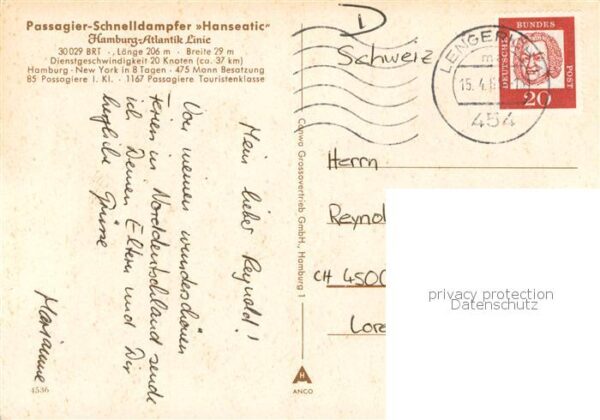 Passagier-Schnelldampfer »Hanseatic«
Hamburg-Atlantik Linie
30029 BRT · Länge 206 m · Breite 29 m
Dienstgeschwindigkeit 20 Knoten (ca. 37 km)
Hamburg - New York in 8 Tagen · 475 Mann Besatzung
85 Passagiere I. Kl. · 1167 Passagiere Touristenklasse
Mein lieber Reynold!
Von meinen wunderschönen
Ferien in Norddeutschland sende
ich Deinen Eltern und Dir
herzliche Grüsse
Marianne
4536
Carwo Grossovertrieb GmbH., Hamburg 1
ANCO
Schweiz
LENGERI
15.4.6
454
DEUTSCHE
BUNDES
POST
20
Herrn
Reynol
CH 4500
Lor
privacy protection
Datenschutz